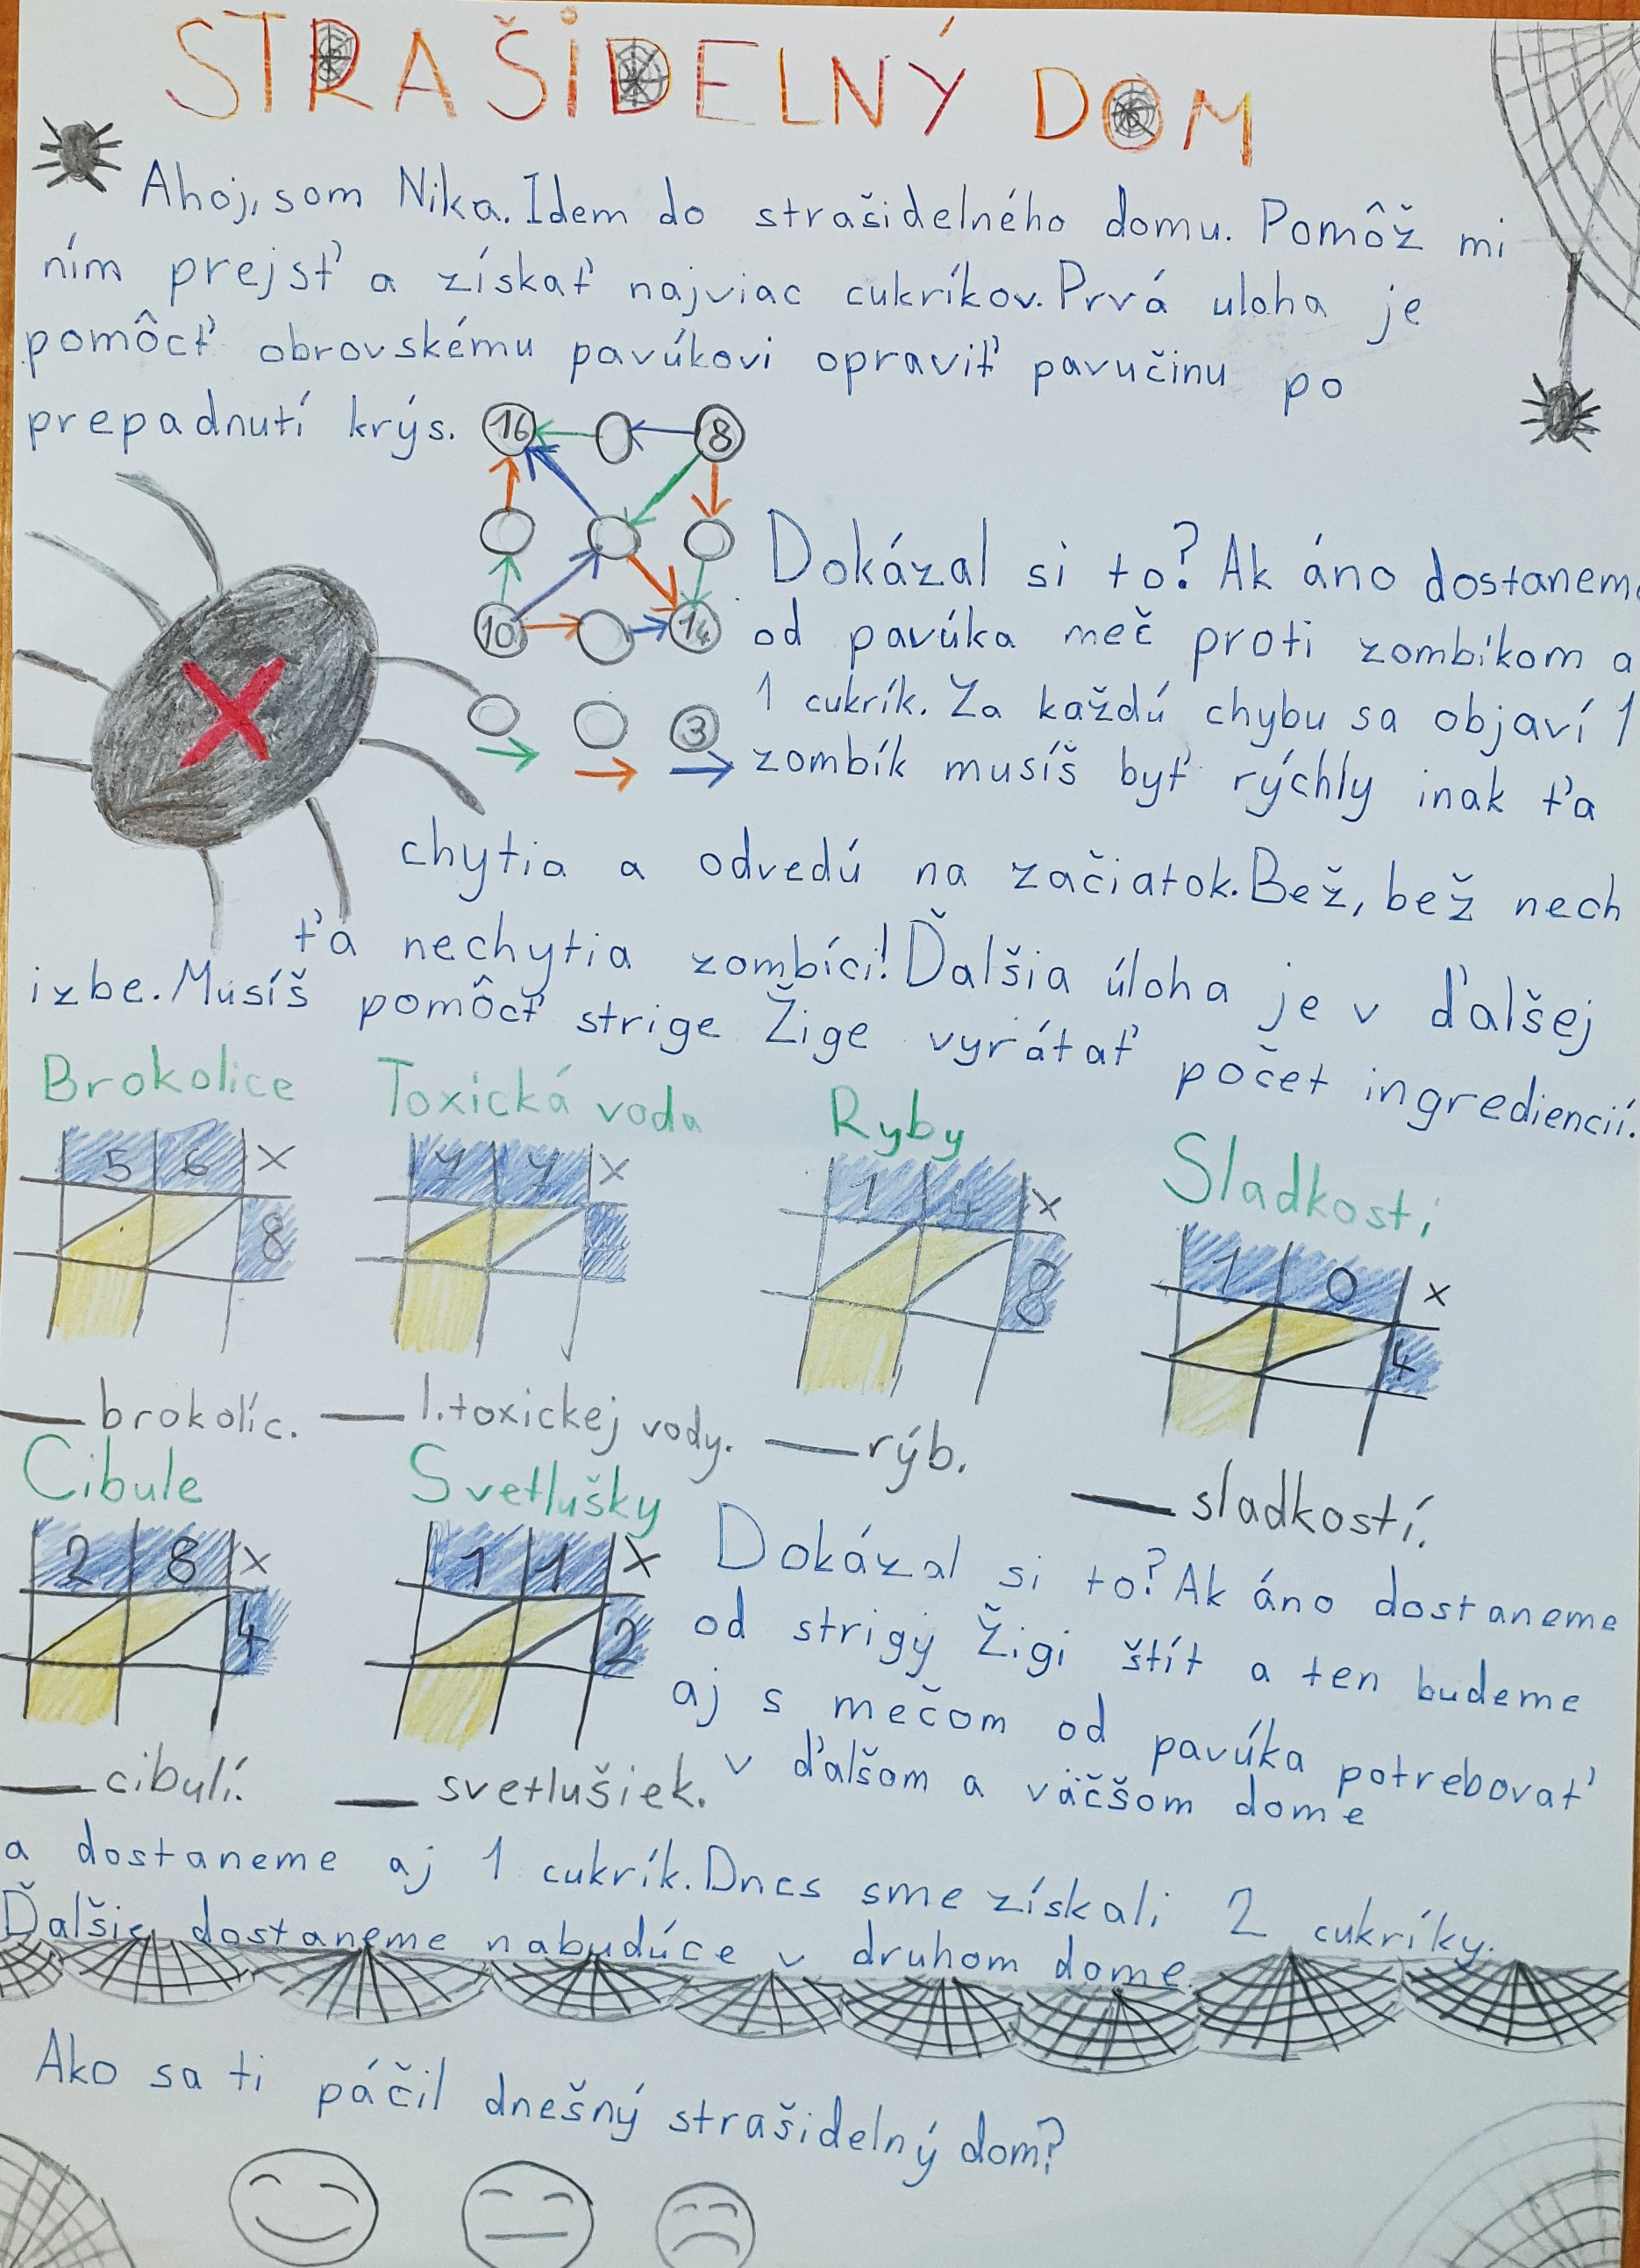 STRAŠIDELNÝ DOM
Ahoj, som Nika. Idem do strašidelného domu. Pomôž mi
ním prejsť a získať najviac cukríkov. Prvá uloha je
pomôcť obrovskému pavúkovi opraviť pavučinu po
prepadnutí krýs.
16 8
10 14
3
Dokázal si to? Ak áno dostaneme
od pavúka meč proti zombíkom a
1 cukrík. Za každú chybu sa objaví 1
zombík musíš byť rýchly inak ťa
chytia a odvedú na začiatok. Bež, bež nech
ťa nechytia zombíci! Ďalšia úloha je v ďalšej
izbe. Musíš pomôcť strige Žige vyrátať počet ingrediencií.
Brokolice Toxická voda Ryby Sladkosti
5 6 x
8
7 7 x
1 4 x
8
1 0 x
4
brokolíc. l. toxickej vody. rýb. sladkostí.
Cibule Svetlušky
2 8 x
4
1 1 x
2
cibulí. svetlušiek.
Dokázal si to? Ak áno dostaneme
od strigy Žigi štít a ten budeme
aj s mečom od pavúka potrebovať
v ďalšom a väčšom dome
a dostaneme aj 1 cukrík. Dnes sme získali 2 cukríky.
Ďalšie dostaneme nabudúce v druhom dome.
Ako sa ti páčil dnešný strašidelný dom?